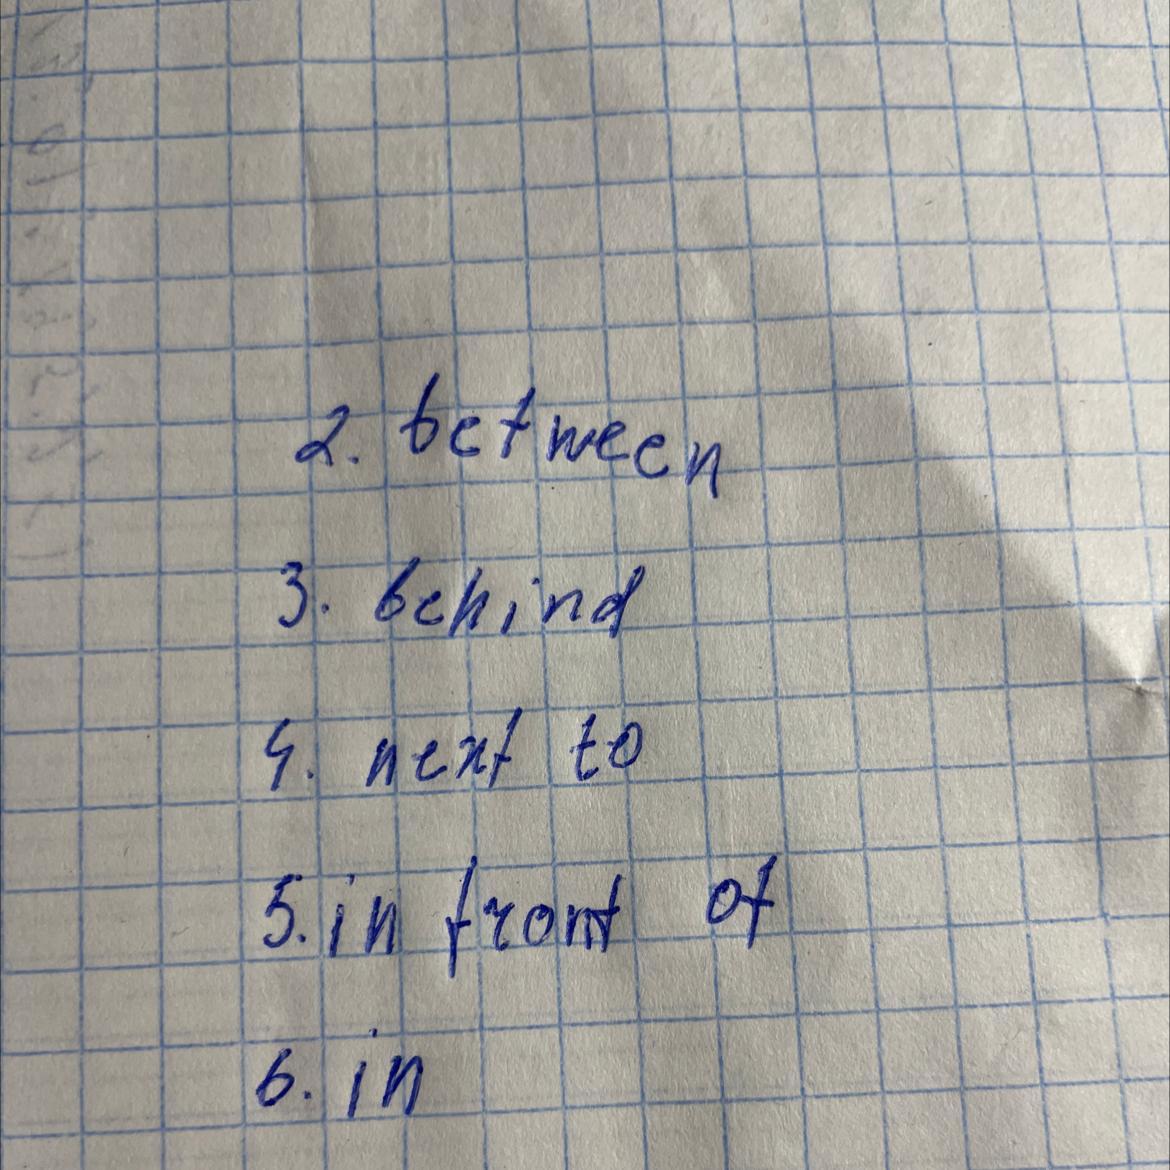 2. between
3. behind
4. next to
5. in front of
6. in